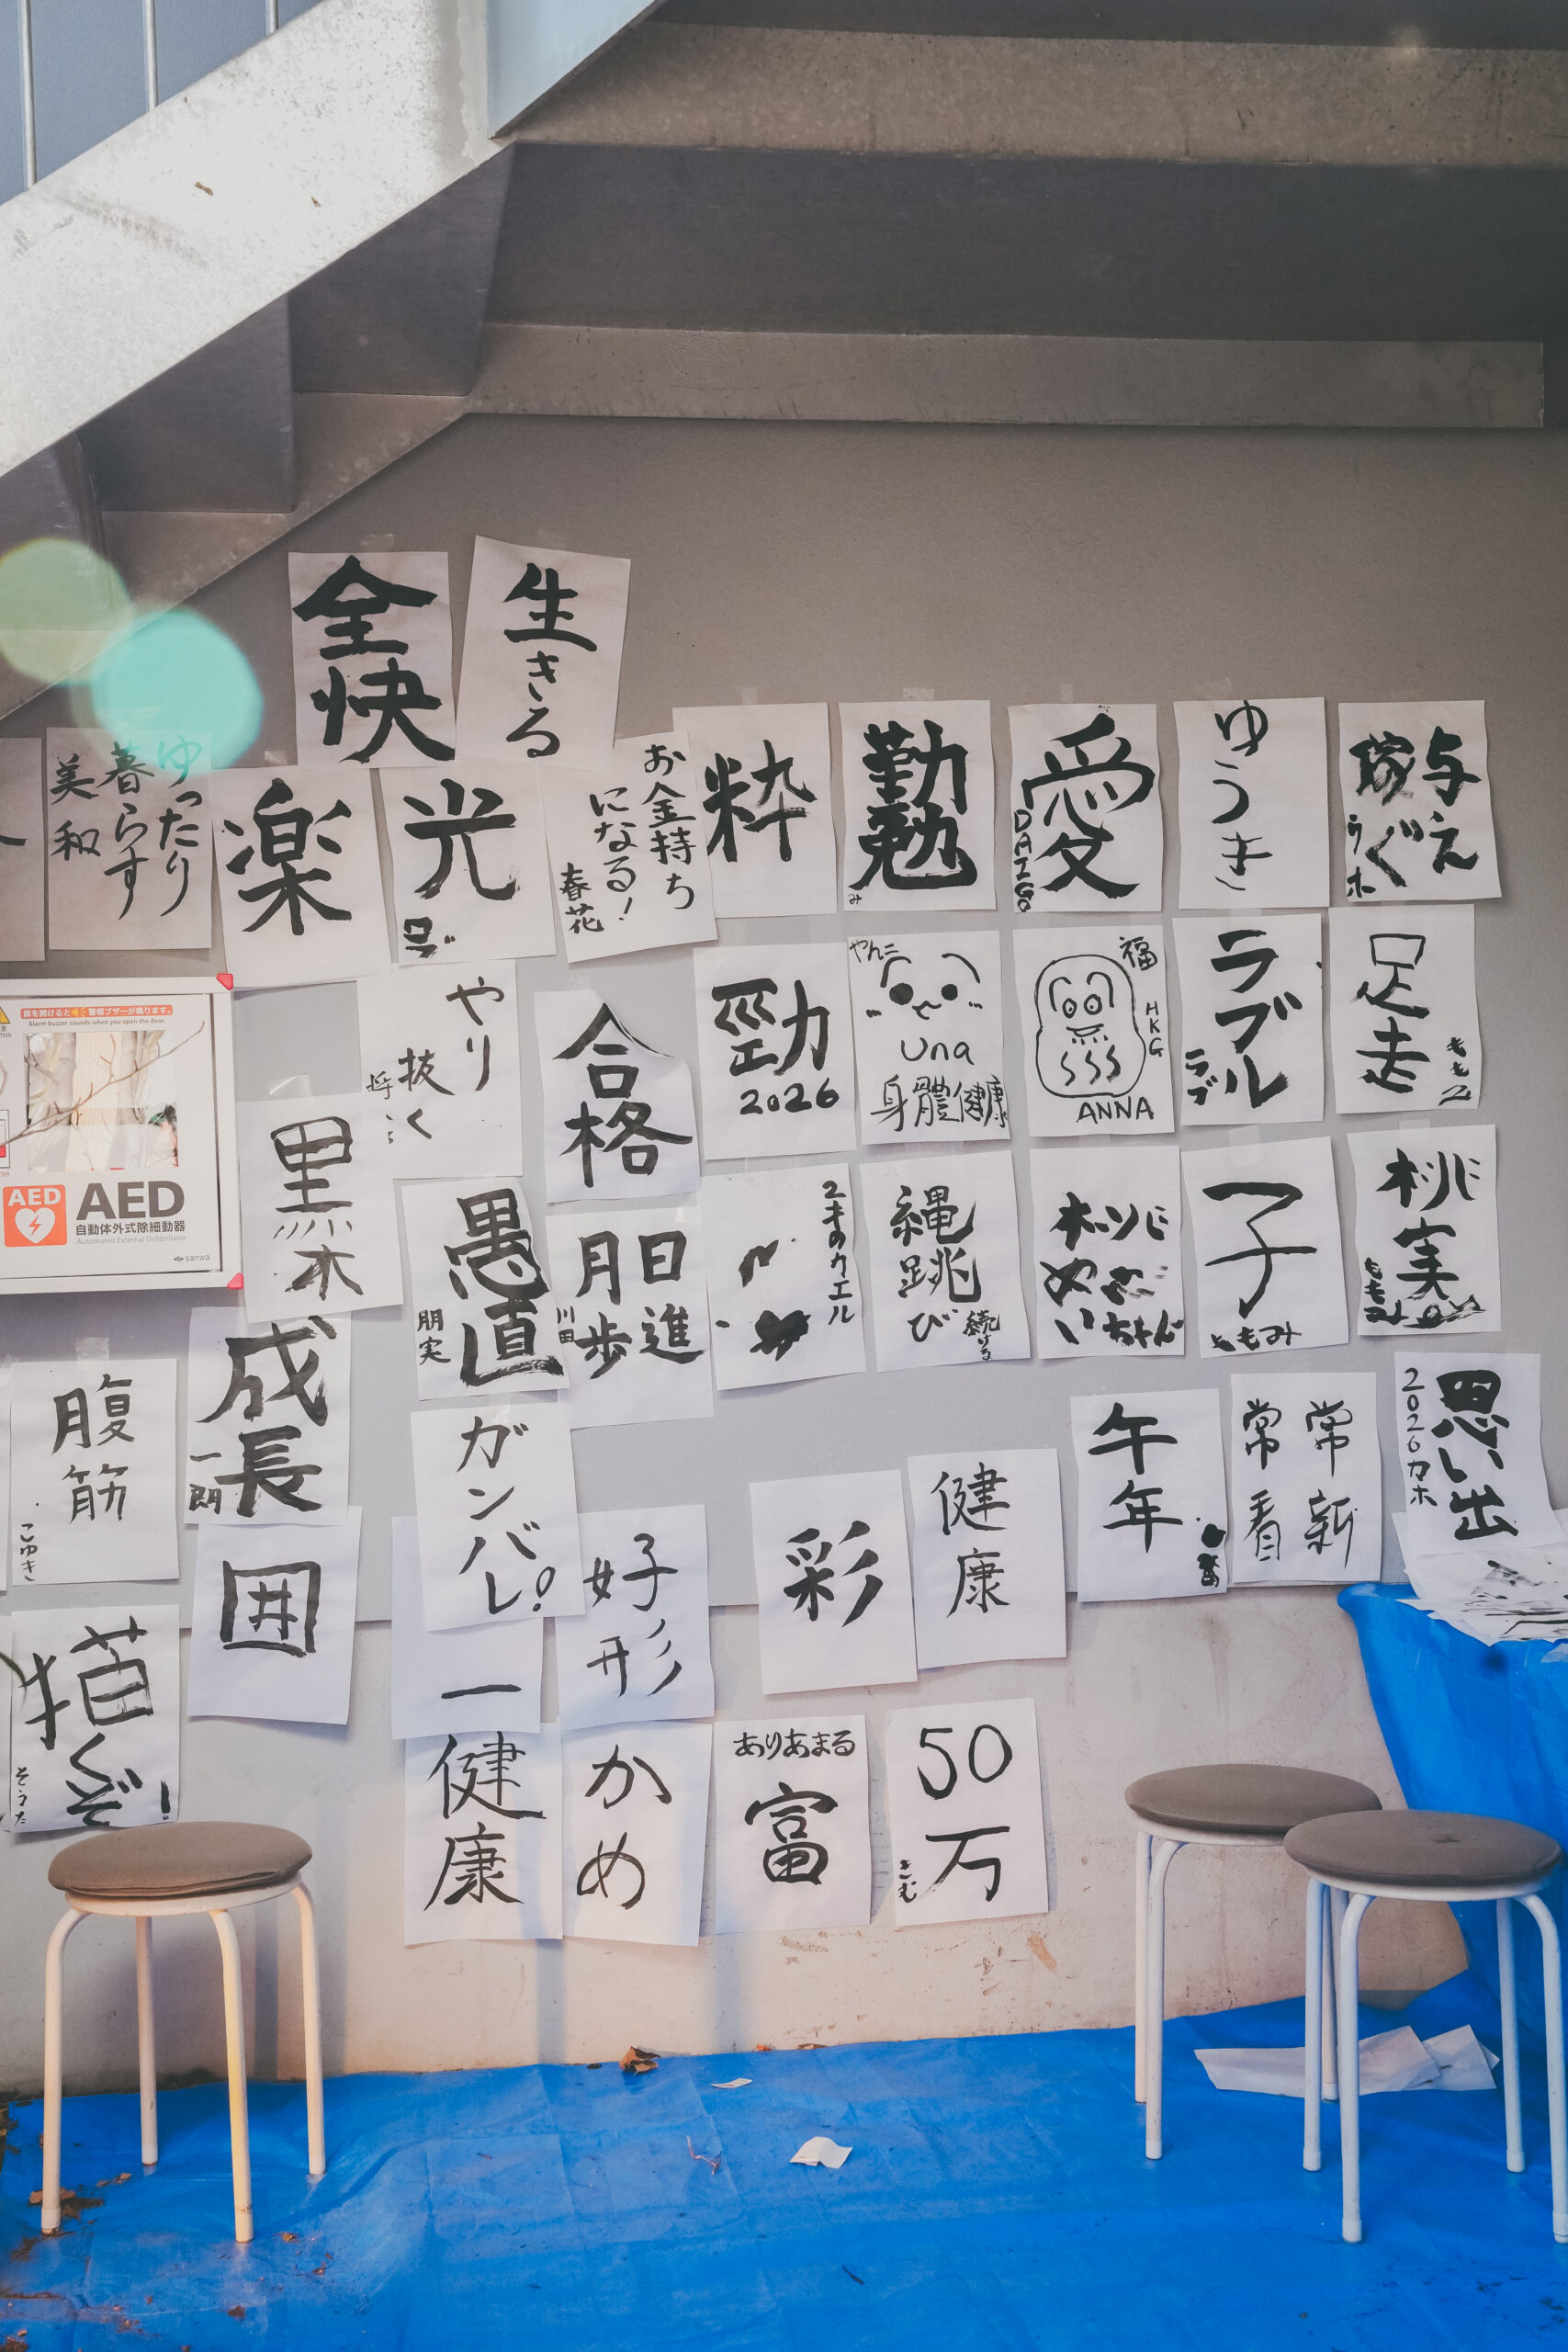 全快
生きる
ゆったり
暮らす
美和
楽
光
お金持ち
になる！
春花
粋
勤勉
み
愛
DAIGO
ゆうき
与え
稼ぐ
うホ
やり
抜く
合格
勁
2026
やんこ
Una
身體健康
福
HKG
ANNA
ラブル
ラブ
足走
ももこ
扉を開けると警報ブザーが鳴ります。
Alarm buzzer sounds when you open the door.
AED
AED
自動体外式除細動器
Automated External Defibrillator
sanwa
黒木
愚直
朋実
日進
月歩
川田
2キのカエル
縄跳び
続ける
桃
めい
ちゃん
子
ともみ
桃実
ももみ
腹筋
こゆき
成長
一朗
ガンバレ！
午年
常新
常看
思い出
2026カホ
囲
好形
彩
健康
描くぞ！
そうた
一
健康
かめ
ありあまる
富
50
万
きむ